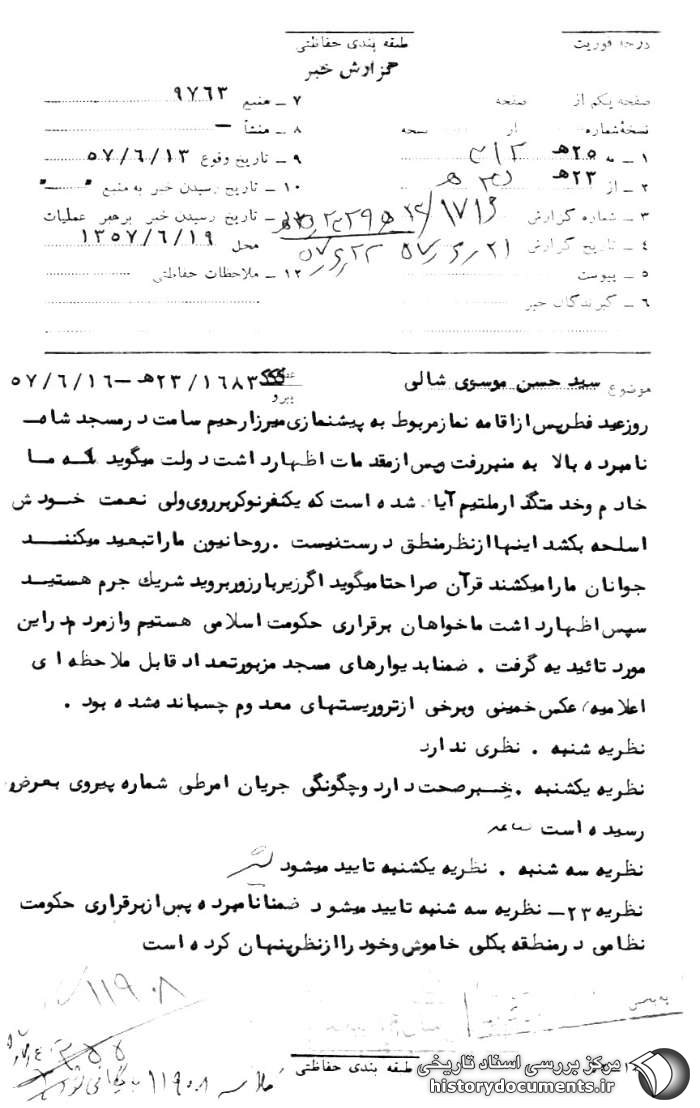 درجه فوریت
طبقه بندی حفاظتی
گزارش خبر
صفحه یکم از صفحه
۷ ـ منبع ۹۷۶۳
نسخهٔ شماره از نسخه
۸ ـ منشأ ـ
۱ ـ به ۲۵ هـ
۹ ـ تاریخ وقوع ۵۷/۶/۱۳
۲ ـ از ۲۳ هـ
۱۰ ـ تاریخ رسیدن خبر به منبع " "
۳ ـ شماره گزارش
۱۱ ـ تاریخ رسیدن خبر برهبر عملیات
۴ ـ تاریخ گزارش ۵۷/۶/۲۱
محل ۱۳۵۷/۶/۱۹
۵ ـ پیوست
۱۲ ـ ملاحظات حفاظتی
۶ ـ گیرندگان خبر
موضوع سید حسن موسوی شالی
پیرو ۲۳/۱۶۸۳هـ ـ ۵۷/۶/۱۶
روزعید فطرپس ازاقامه نمازمربوط به پیشنمازی میرزارحیم سامت درمسجد شاه
نامبرده بالا به منبررفت وپس ازمقدمات اظهارداشت دولت میگوید که ما
خادم وخدمتگذارملتیم آیا شده است که یکنفرنوکربرروی ولی نعمت خودش
اسلحه بکشد اینهاازنظرمنطق درست نیست . روحانیون ماراتبعید میکنند
جوانان مارامیکشند قرآن صراحتامیگوید اگرزیربارزوربروید شریك جرم هستید
سپس اظهارداشت ماخواهان برقراری حکومت اسلامی هستیم وازمردم دراین
مورد تائیدیه گرفت . ضمنابدیوارهای مسجد مزبورتعداد قابل ملاحظه ای
اعلامیه، عکس خمینی وبرخی ازتروریستهای معدوم چسبانده شده بود .
نظریه شنبه . نظری ندارد
نظریه یکشنبه . خبرصحت دارد وچگونگی جریان امرطی شماره پیروی بعرض
رسیده است
نظریه سه شنبه . نظریه یکشنبه تایید میشود
نظریه ۲۳ـ نظریه سه شنبه تایید میشود ضمنانامبرده پس ازبرقراری حکومت
نظامی درمنطقه بکلی خاموش وخود راازنظرپنهان کرده است
۱۱۹۰۸
طبقه بندی حفاظتی
۱۱۹۰۸
مرکز بررسی اسناد تاریخی
historydocuments.ir